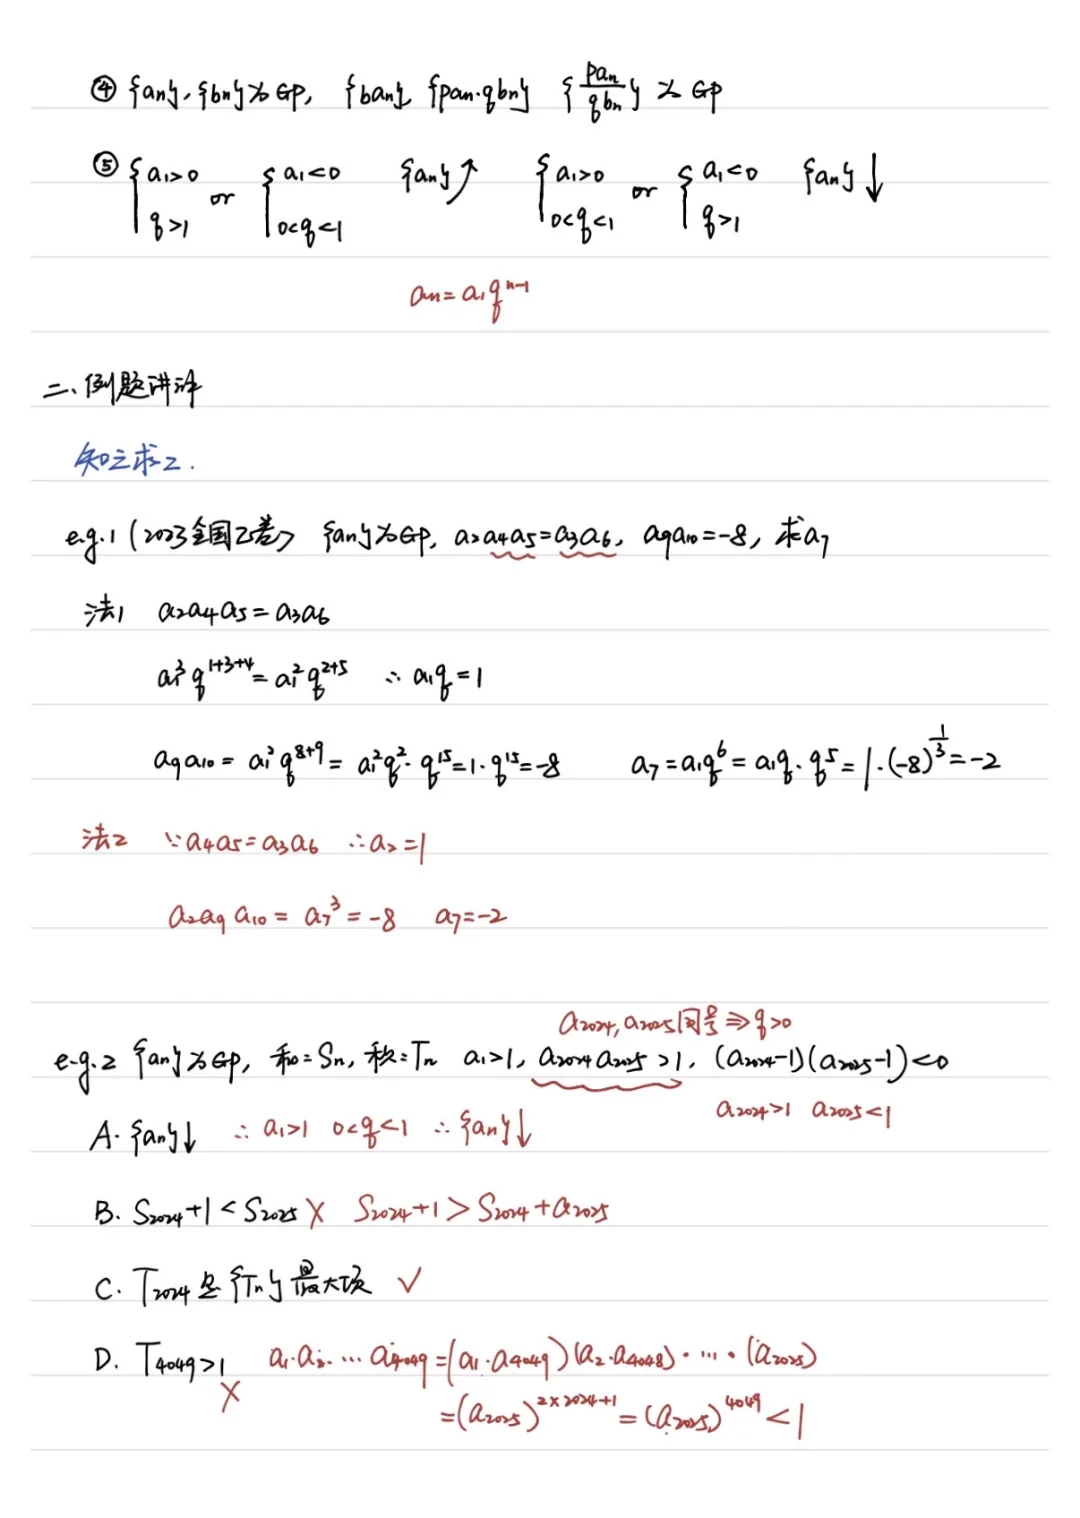 ④ {an}、{bn}为GP, {ban} {pan·qbn} {pan/qbn} 为GP
⑤ {a₁>0 q>1 or {a₁<0 0<q<1 {an}↗ {a₁>0 0<q<1 or {a₁<0 q>1 {an}↓
an=a₁qⁿ⁻¹
二、例题讲评
知三求二.
e.g.1 (2023全国乙卷) {an}为GP, a₂a₄a₅=a₃a₆, a₉a₁₀=-8, 求a₇
法1 a₂a₄a₅=a₃a₆
a₁³q¹⁺³⁺⁴=a₁²q²⁺⁵ ∴a₁q=1
a₉a₁₀=a₁²q⁸⁺⁹=a₁²q²·q¹⁵=1·q¹⁵=-8 a₇=a₁q⁶=a₁q·q⁵=1·(-8)^(1/3)=-2
法2 ∵a₄a₅=a₃a₆ ∴a₂=1
a₂a₉a₁₀=a₇³=-8 a₇=-2
a₂₀₂₄,a₂₀₂₅同号⇒q>0
e.g.2 {an}为GP, 和=Sn, 积=Tn a₁>1, a₂₀₂₄a₂₀₂₅>1, (a₂₀₂₄-1)(a₂₀₂₅-1)<0
a₂₀₂₄>1 a₂₀₂₅<1
A. {an}↓ ∴a₁>1 0<q<1 ∴{an}↓
B. S₂₀₂₄+1<S₂₀₂₅ × S₂₀₂₄+1>S₂₀₂₄+a₂₀₂₅
C. T₂₀₂₄是{Tn}最大项 ✓
D. T₄₀₄₉>1 × a₁·a₂·…a₄₀₄₉=(a₁·a₄₀₄₉)(a₂·a₄₀₄₈)·…·(a₂₀₂₅)
=(a₂₀₂₅)²ˣ²⁰²⁴⁺¹=(a₂₀₂₅)⁴⁰⁴⁹<1